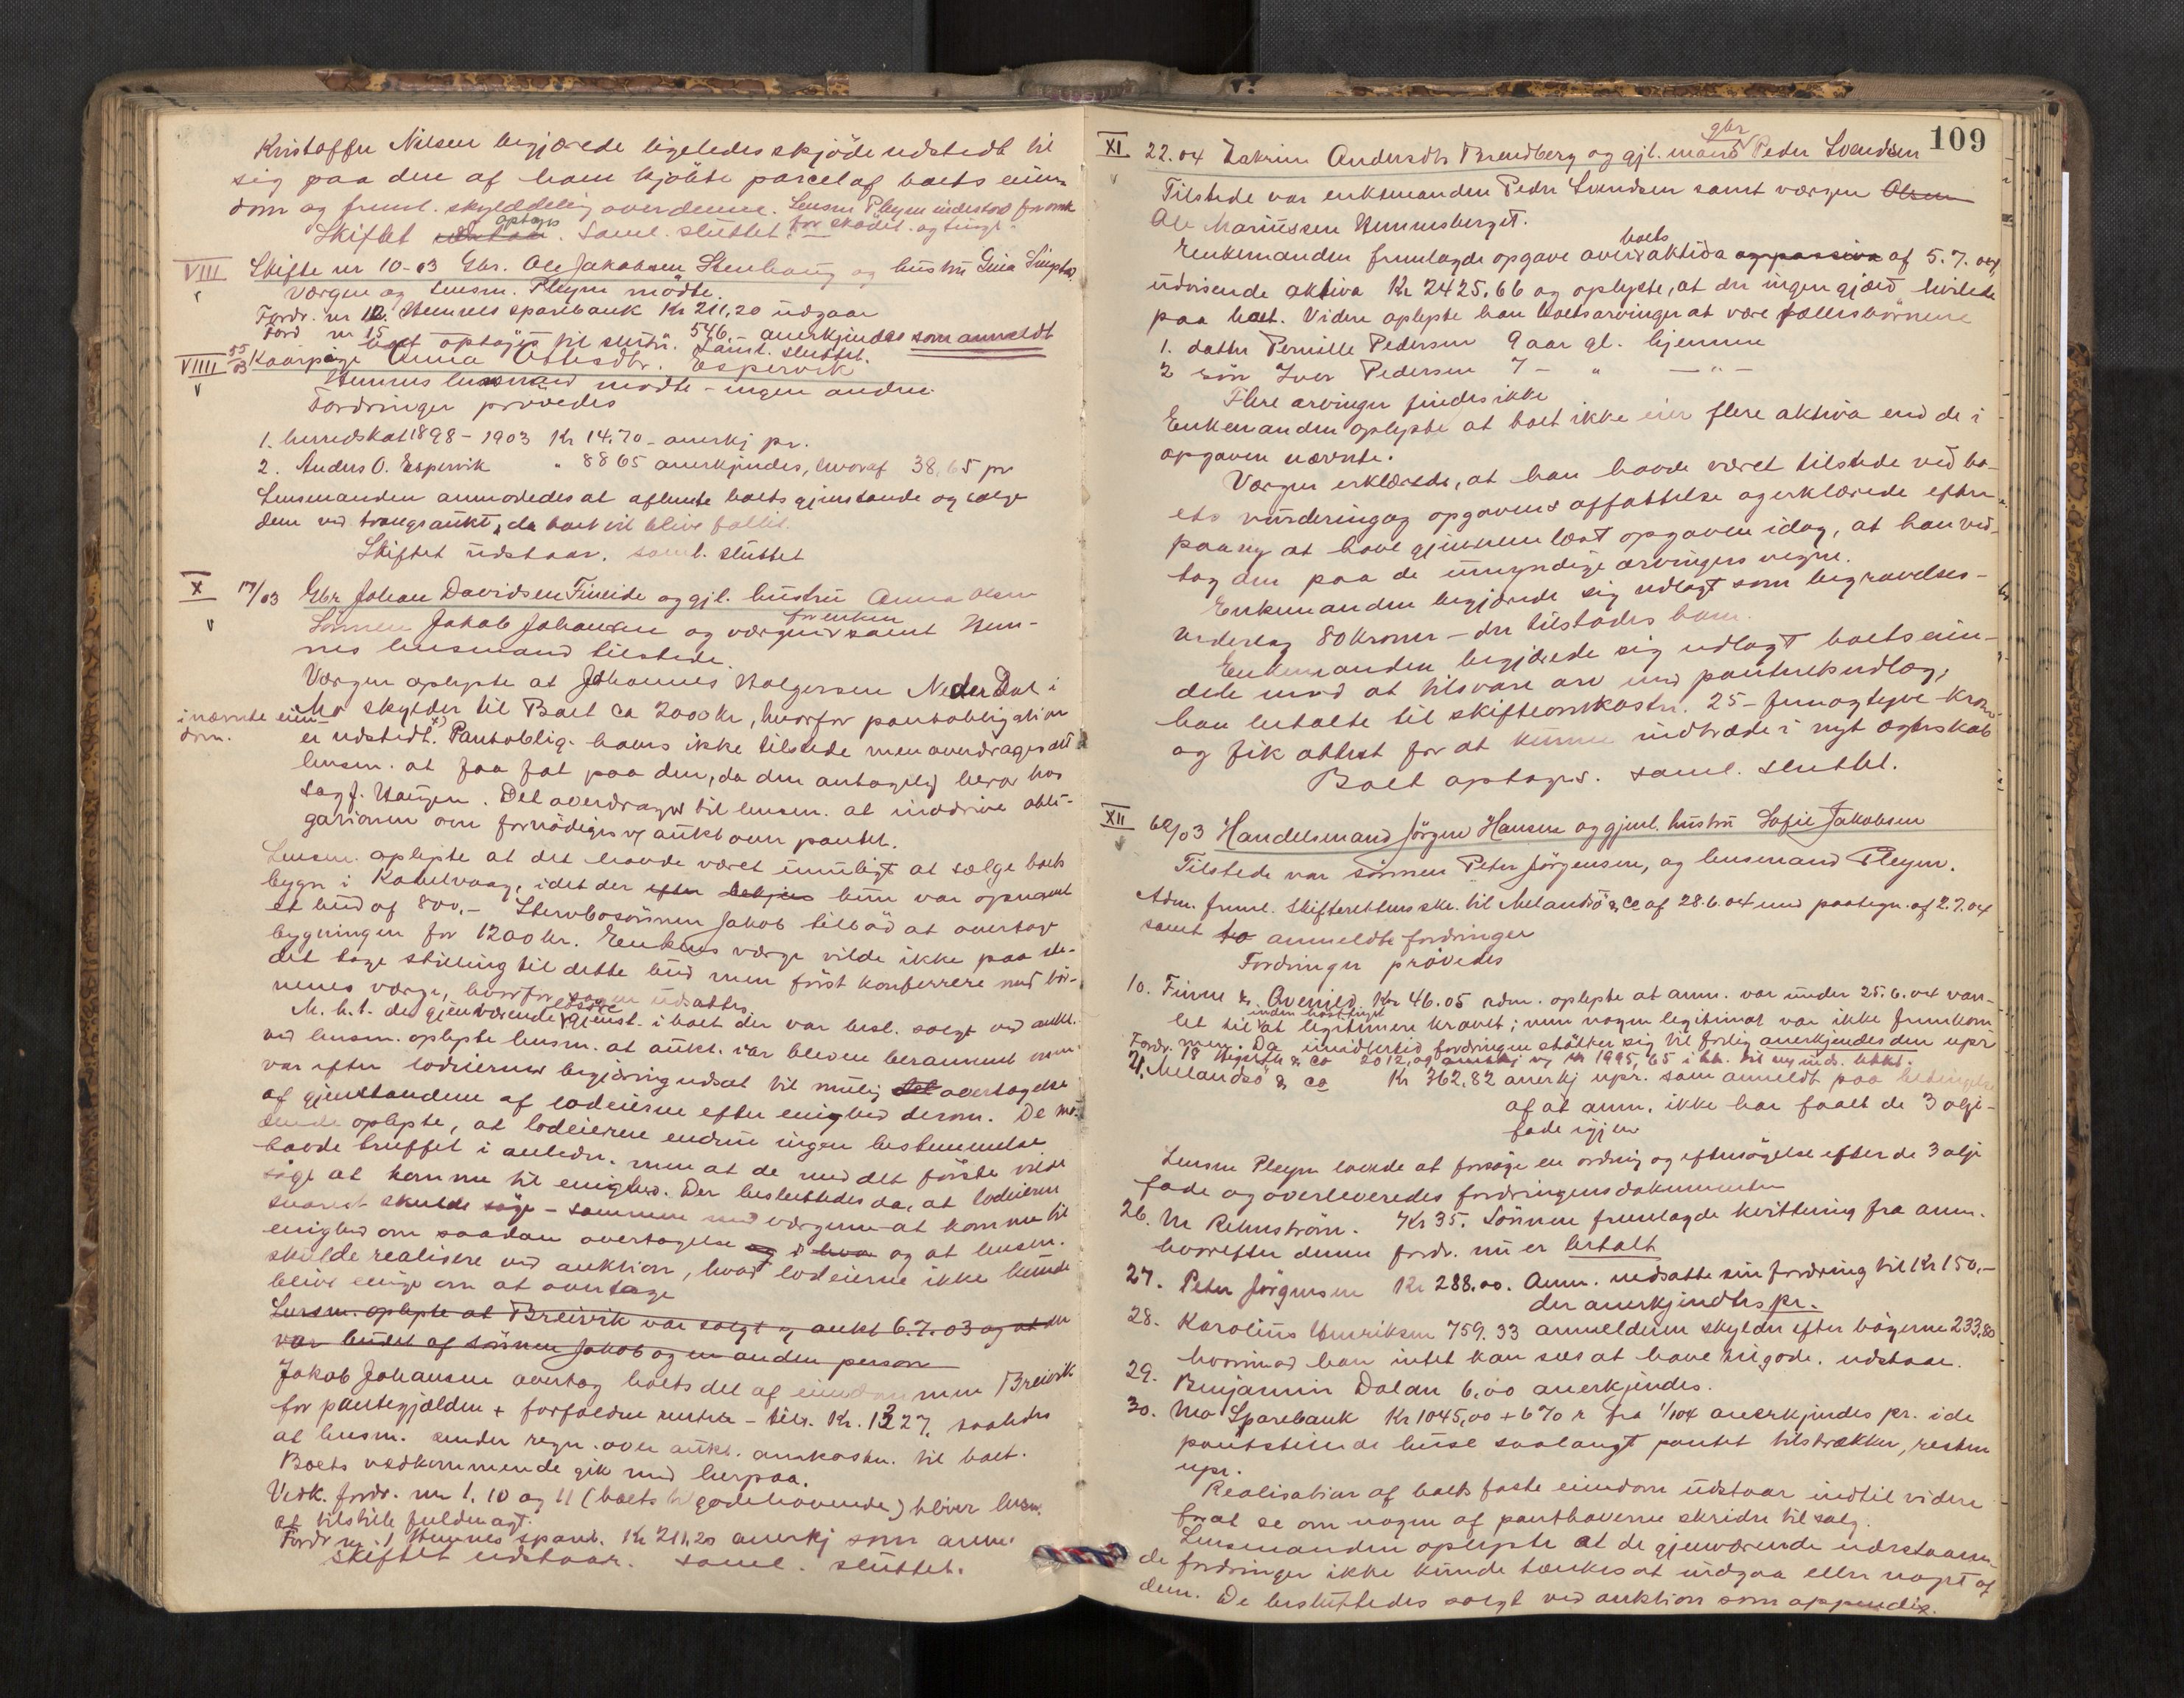 Kristoffer Nilsen begjærede ligeledes skjöde udstedt til
sig paa den af ham kjöbte parcel af boets eien-
dom og freml. skylddeling over denne. Lensm Pleym indestod for omk
for sködet og tingl.
Skiftet optages. Saml. sluttet.
VIII Skifte nr 10-03 Gbr. Ole Jakobsen Stenhaug og hustru Gina
Værgen og lensm. Pleym mödte.
Fordr. nr 12. Hemnes sparebank Kr 211,20 udgaar
Ford nr 15 546, anerkjendes som anmeldt
Boet optages til slutn. Saml. sluttet.
VIIII 55/03 Kaarpige Anna Ottesdtr. Espervik
Hemnes lensmand mödte - ingen andre.
Fordringer prövedes
1. herredskat 1898 - 1903 Kr 14.70 - anerkj pr.
2. Anders O. Espervik " 88 65 anerkjendes, hvoraf 38,65 pr
Lensmanden anmodedes at afhente boets gjenstande og sælge
dem ved tvangsaukt, da boet vil blive fallit.
Skiftet udstaar. saml. sluttet
X 17/03 Gbr Johan Davidsen Fineide og gjl. hustru Anna Olsen
Sönnen Jakob Johansen og værgen for enken samt Hem-
nes lensmand tilstede.
Værgen oplyste at Johannes Holgersen Neder Dal i
Mo skylder til Boet ca 2000 kr, hvorfor pantobligation
i nævnte eien-
dom.
er udstedt. Pantoblig. haves ikke tilstede men overdrages det
lensm. at faa fat paa den, da den antagelig beror hos
sagf. Haugen. Det overdrages til lensm. at inddrive obli-
gationen om fornödiges v/ aukt over pantet.
Lensm. oplyste at det havde været umuligt at sælge boets
bygn i Kabelvaag, idet der efter kun var opnaaet
et bud af 800,- Stervbosönnen Jakob tilböd at overtage
bygningen for 1200 kr. Enkens værge vilde ikke paa ste-
det tage stilling til dette bud men först konferrere med bör-
nenes værge, hvorfor sagen udsattes.
M. h. t. de gjenværende lösöre gjenst. i boet der var besl. solgt ved aukt.
ved lensm. oplyste lensm. at aukt. iaar bleven berammet men
var efter lodeiernes begjæring udsat til mulig overtagelse
af gjenstandene af lodeierne efter enighed derom. De mö-
dende oplyste, at lodeierne endnu ingen bestemmelse
havde truffet i anledn. men at de med det förste vilde
söge at komme til enighed. Der besluttedes da, at lodeierne
snarest skulde söge - sammen med værgerne at komme til
enighed om saadan overtagelse og at lensm.
skulde realisere ved auktion, hvad lodeierne ikke kunde
blive enige om at overtage
Lensm. oplyste at Breivik var solgt v/ aukt 6.7.03 og at den
var budet af sönnen Jakob og en anden person
Jakob Johansen overtog boets del af eiendommen Breivik
for pantegjælden + forfaldne renter - tils. Kr. 1327, saaledes
at lensm. sender regn. over aukt. omkostn. til boet.
Boets vedkommende gik med herpaa.
Vedk. fordr. nr 1, 10 og 11 (boets tilgodehavende) bliver lensm.
at tilstille fuldmagt.
Fordr nr. 1 Hemnes spareb. Kr 211,20 anerkj som anm.
Skiftet udstaar. saml. sluttet.
109
XI 22.04 Zakrine Andersdtr Brendberg og gjl. mand gbr Peder Svendsen
Tilstede var enkemanden Peder Svendsen samt værgen Olsen
Ole Mariussen Hemnesberget.
Enkemanden fremlagde opgave over boets aktiva og passiva af 5.7.04
udvisende aktiva Kr 2425.66 og oplyste, at der ingen gjæld hvilede
paa boet. Videre oplyste han boets arvinger at være fællesbörnene
1. datter Pernille Pedersen 9 aar gl. hjemme
2 sön Iver Pedersen 7 - " - " -
Flere arvinger findes ikke
Enkemanden oplyste at boet ikke eier flere aktiva end de i
opgaven nævnte.
Værgen erklærede, at han havde været tilstede ved bo-
ets vurdering og opgavens affattelse og erklærede efter
paany at have gjennemlæst opgaven idag, at han ved-
tog den paa de umyndige arvingers vegne.
Enkemanden begjærede sig udlagt som begravelses-
vederlag 80 kroner - der tilstodes ham.
Enkemanden begjærede sig udlagt boets eien-
dele mod at tilsvare arv med panteretsudlæg,
han betalte til skifteomkostn. 25 - femogtyve kroner
og fik attest for at kunne indtræde i nyt ægteskab
Boet optages. saml. sluttet.
XII 62/03 Handelsmand Jörgen Hansen og gjenl. hustru Sofie Jakobsen
Tilstede var sönnen Peter Jörgensen, og lensmand Pleym.
Adm. freml. skifterettens skr. til Melandsö & Co af 28.6.04 med paategn. af 2.7.04
samt to anmeldte fordringer
Fordringer prövedes
10. Finne & Kr 46.05 adm. oplyste at anm. var under 25.6.04 var-
let til inden at legitimere kravet; men nogen legitimat var ikke fremkom-
met. Da imidlertid fordringen stötter sig til forlig anerkjendes den upr
Fordr. 18 & Co 2012, og 1995,65
21. Melandsö & Co Kr 362,82 anerkj upr. som anmeldt paa betingelse
af at anm. ikke har faaet de 3 olje-
fade igjen
Lensm Pleym lovede at forsöge en ordning og eftersögelse efter de 3 olje
fade og overleveredes fordringensdokumenter
26. M Rehnström. Kr 35. Sönnen fremlagde kvittering fra anm.
hvorefter denne fordr. nu er betalt
27. Peter Jörgensen Kr 288.00. Anm. nedsatte sin fordring til Kr 150,-
der anerkjendtes pr.
28. Karolius Henriksen 759.33 anmelderen skylder efter bögerne 233,80
hvorimod han intet kan sees at have tilgode. udstaar.
29. Benjamin Dalan 6,00 anerkjendes.
30. Mo Sparebank Kr 1045,00 + 6% r fra 1/1 04 anerkjendes pr. i de
pantstillede huse saalangt pantet tilstrækker, resten
upr.
Realisation af boets faste eiendom udstaar indtil videre
for at se om nogen af panthaverne skrider til salg.
Lensmanden oplyste at de gjenværende udestaaen-
de fordringer ikke kunde tænkes at indgaa eller noget af
dem. De besluttedes solgt ved auktion som appendix.